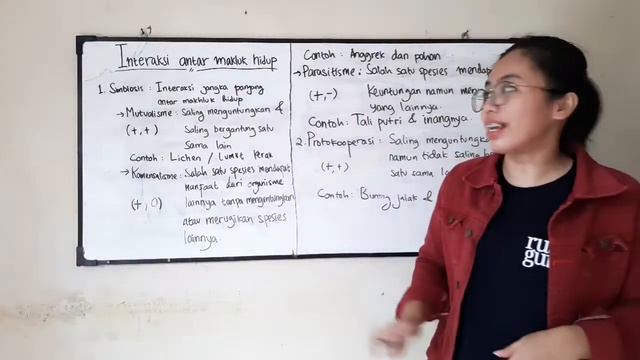 Interaksi antar makluk hidup
1. Simbiosis : Interaksi jangka panjang
antar makhluk hidup
→ Mutualisme : Saling menguntungkan &
(+,+) Saling bergantung satu
sama lain
Contoh : Lichen / Lumut Kerak
→ Komensalisme : Salah satu spesies mendapat
manfaat dari organisme
(+,0) lainnya tanpa menguntungkan
atau merugikan spesies
lainnya.
Contoh : Anggrek dan pohon
→ Parasitisme : Salah satu spesies
(+,-) Keuntungan namun
yang lainnya.
Contoh : Tali putri & inangnya.
2. Protokooperasi : Saling
(+,+) namun tidak saling
satu sama
Contoh : Burung jalak &